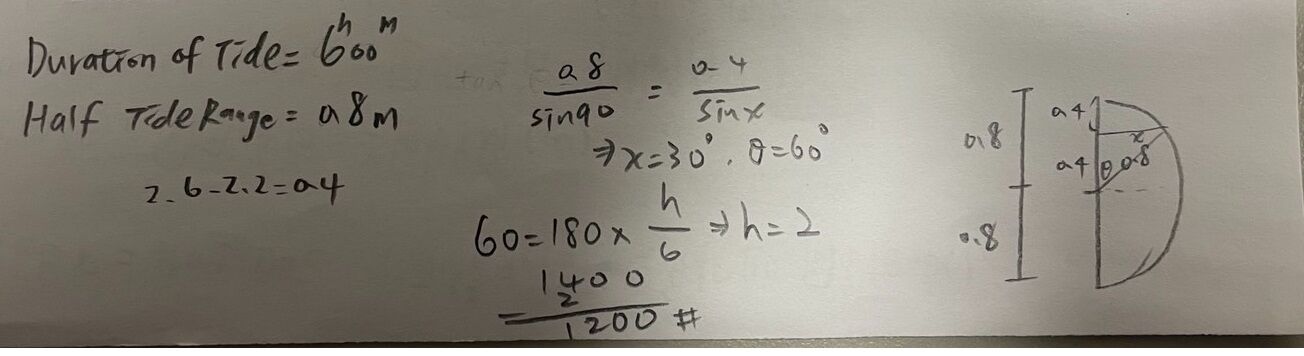 Duration of Tide = 6ʰ00ᵐ
Half Tide Range = 0.8m
2.6-2.2=0.4
0.8/sin90 = 0.4/sinx
⇒x=30°. θ=60°
60=180× h/6 ⇒h=2
1400
- 2
1200 #
0.8
0.8
0.4
0.4
θ
0.8
x